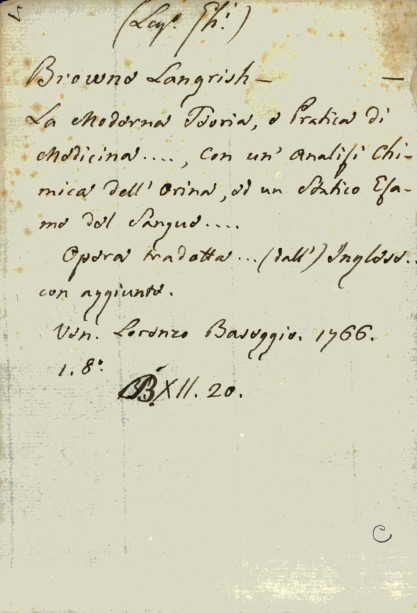 (Leg. Ghi.)
Browne Langrish —
La Moderna Teoria, e Pratica di
Medicina...., con un' Analisi Chi-
mica dell' Orina, ed un Statico Esa-
me del Sangue....
Opera tradotta... (dall') Inglese..
con aggiunte.
Ven. Lorenzo Baseggio. 1766.
1. 8°.
B. XII. 20.
C